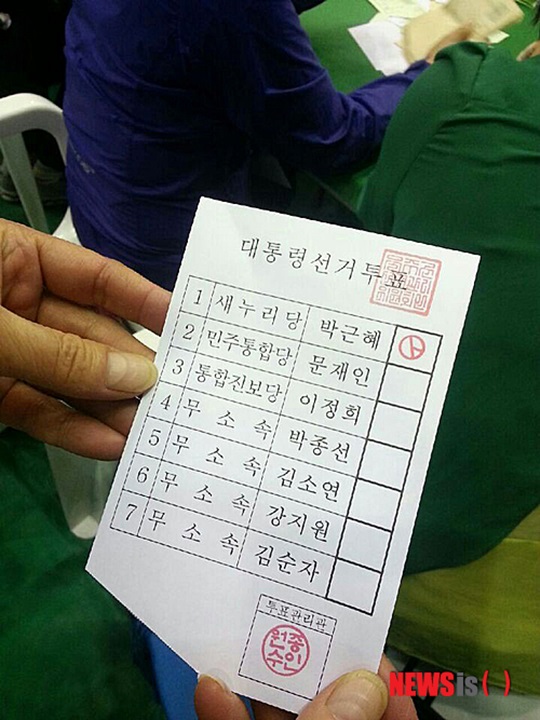 대통령선거투표
1 새누리당 박근혜
2 민주통합당 문재인
3 통합진보당 이정희
4 무소속 박종선
5 무소속 김소연
6 무소속 강지원
7 무소속 김순자
투표관리관
NEWSis( )